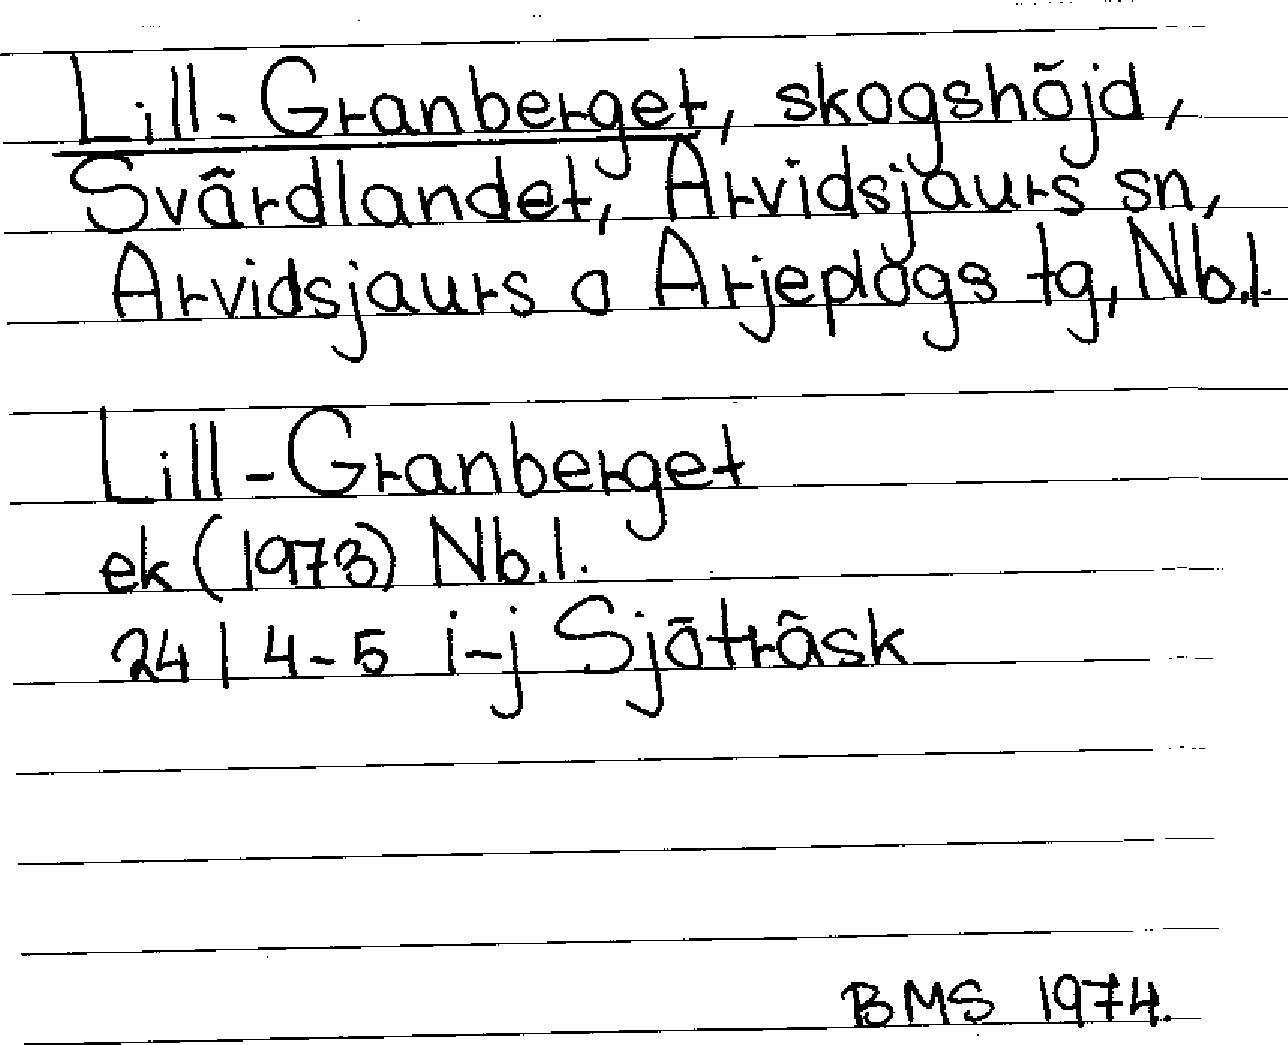 Lill-Granberget, skogshöjd,
Svärdlandet, Arvidsjaurs sn,
Arvidsjaurs o Arjeplogs tg, Nb.l.
Lill-Granberget
ek (1973) Nb.l.
24 I 4-5 i-j Sjöträsk
BMS 1974.